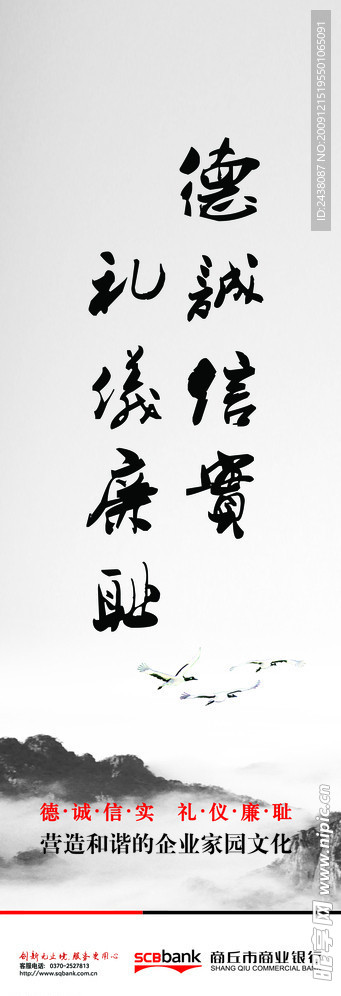 德誠信實
礼儀廉耻
德·诚·信·实 礼·仪·廉·耻
营造和谐的企业家园文化
创新无止境 服务更用心
客服电话: 0370-2527813
http://www.sqbank.com.cn
SCBbank
商丘市商业银行
SHANG QIU COMMERCIAL BANK
ID:2438087 NO:20091215195501065091
昵享网 www.nipic.cn